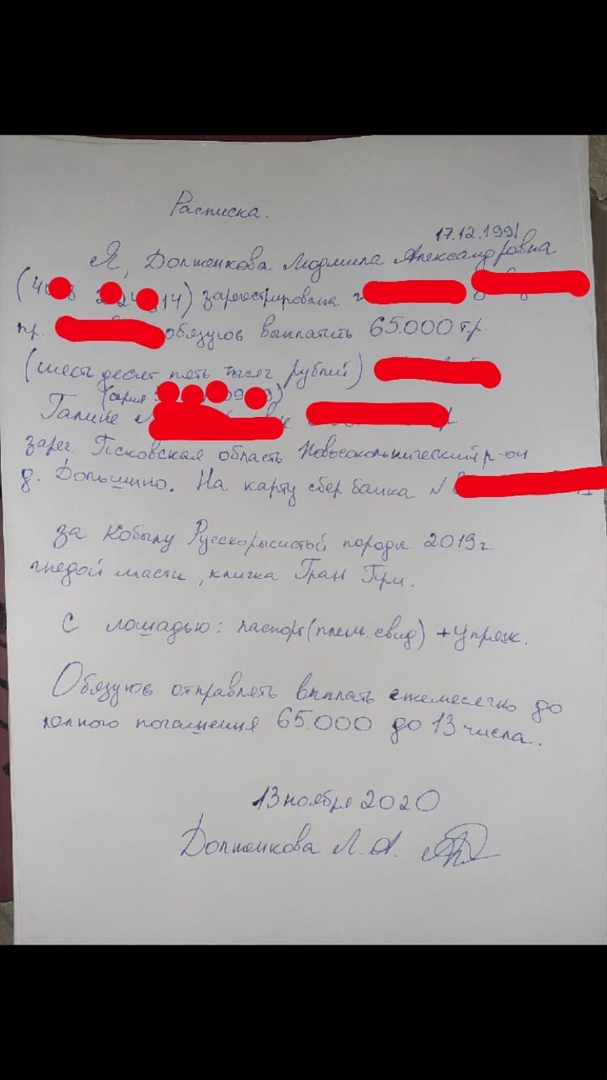 Расписка.
17.12.1991
Я, Долженкова Людмила Александровна
зарегистрирована г
пр. обязуюв выплатить 65.000 т.р.
(шесть десят пять тысяч рублей)
(серия
Галине
зарег. Псковская область Новосокольнический р-он
д. Долыщино. На карту сбер банка N
за Кобылу Русскорысистой породы 2019 г.
гнедой масти, кличка Гран При.
С лошадью: паспорт(плем. свид) + упряж.
Обязуюв отправлеть выплаты ежемесечно до
полного погашения 65.000 до 13 числа.
13 ноября 2020
Долженкова Л. А.